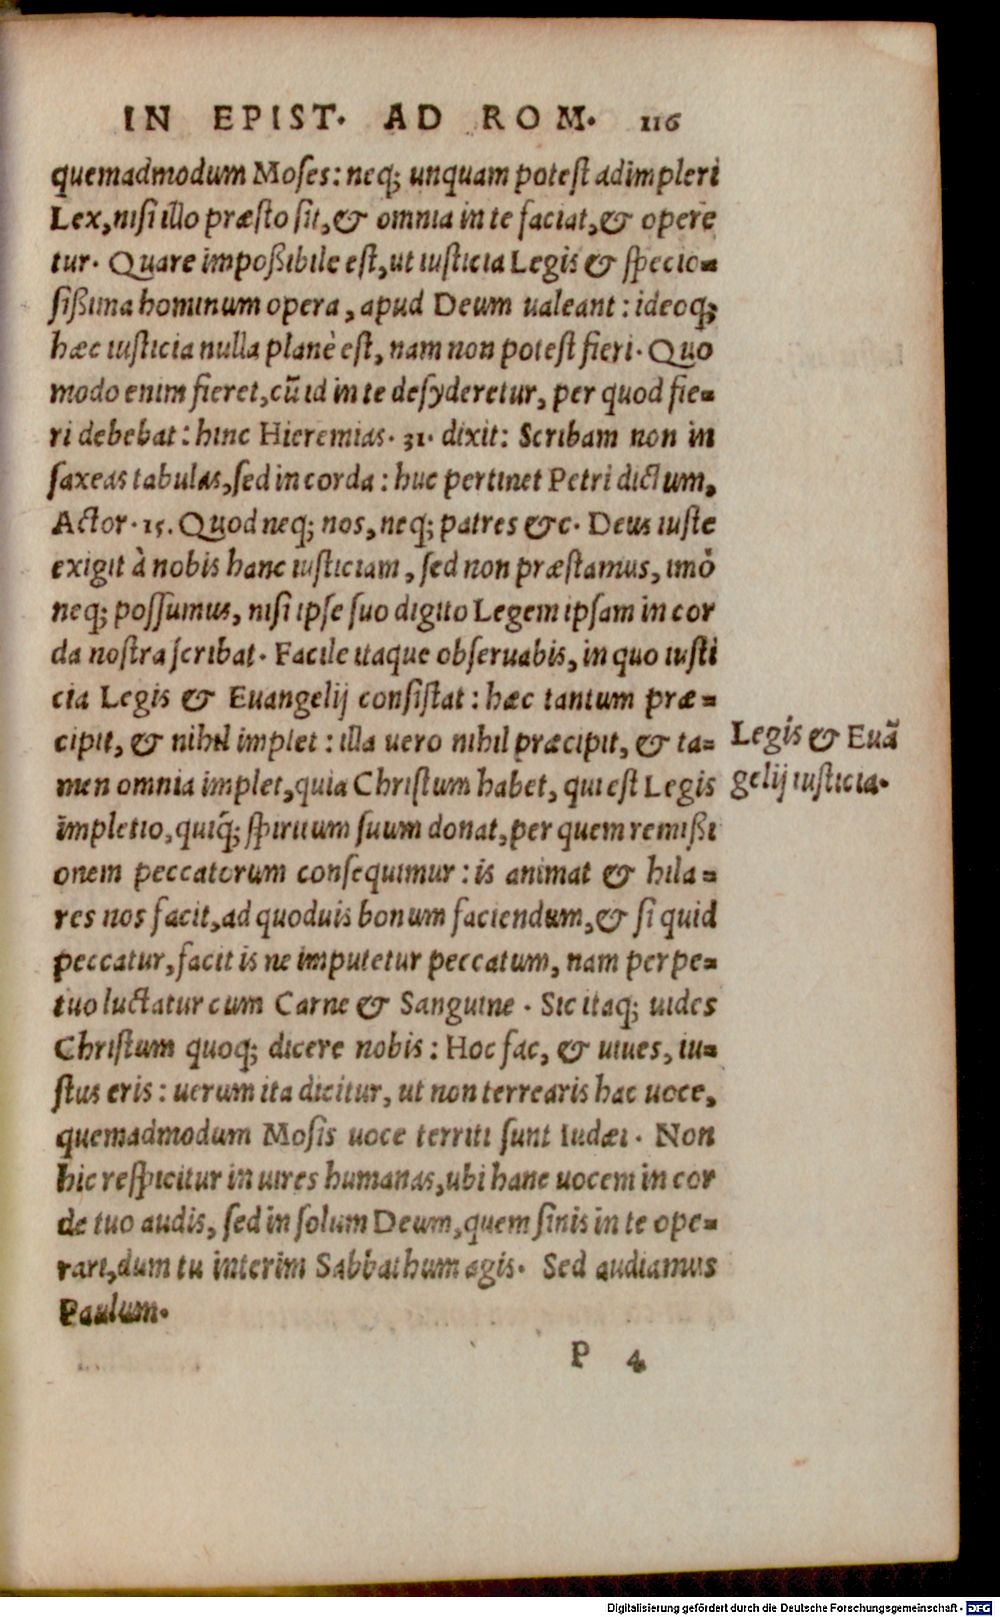 IN EPIST. AD ROM. 116
quemadmodum Moses: neq; unquam potest adimpleri
Lex, nisi illo præsto sit, & omnia in te faciat, & opere
tur. Quare impoßibile est, ut iusticia Legis & specio=
sißima hominum opera, apud Deum ualeant: ideoq;
hæc iusticia nulla planè est, nam non potest fieri. Quo
modo enim fieret, cũ id in te desyderetur, per quod fie=
ri debebat: hinc Hieremias. 31. dixit: Scribam non in
saxeas tabulas, sed in corda: huc pertinet Petri dictum,
Actor. 15. Quod neq; nos, neq; patres &c. Deus iuste
exigit à nobis hanc iusticiam, sed non præstamus, imò
neq; possumus, nisi ipse suo digito Legem ipsam in cor
da nostra scribat. Facile itaque obseruabis, in quo iusti
cia Legis & Euangelij consistat: hæc tantum præ=
cipit, & nihil implet: illa uero nihil præcipit, & ta=
men omnia implet, quia Christum habet, qui est Legis
impletio, quiq́; spiritum suum donat, per quem remißi
onem peccatorum consequimur: is animat & hila=
res nos facit, ad quoduis bonum faciendum, & si quid
peccatur, facit is ne imputetur peccatum, nam perpe=
tuo luctatur cum Carne & Sanguine. Sic itaq; uides
Christum quoq; dicere nobis: Hoc fac, & uiues, iu=
stus eris: uerum ita dicitur, ut non terrearis hac uoce,
quemadmodum Mosis uoce territi sunt Iudæi. Non
hic respicitur in uires humanas, ubi hanc uocem in cor
de tuo audis, sed in solum Deum, quem sinis in te ope=
rari, dum tu interim Sabbathum agis. Sed audiamus
Paulum.
Legis & Euã
gelij iusticia.
P 4
Digitalisierung gefördert durch die Deutsche Forschungsgemeinschaft - DFG